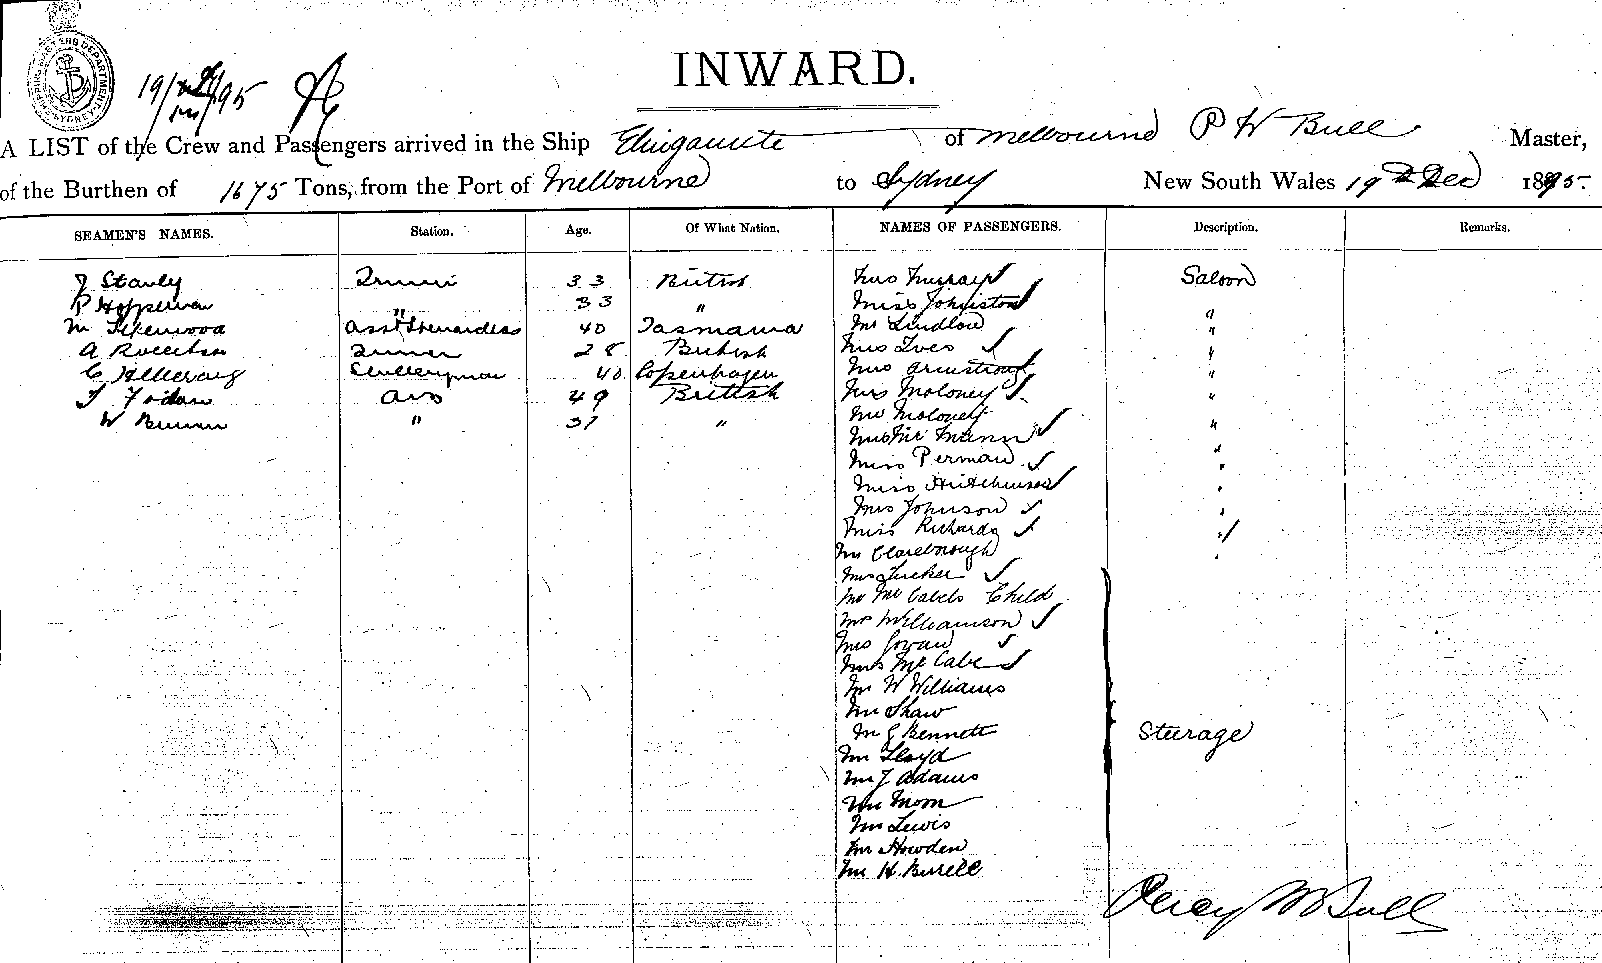 SHIPPING MASTERS DEPARTMENT SYDNEY
19/ /95
INWARD.
A LIST of the Crew and Passengers arrived in the Ship Elingamite of Melbourne P W Bull Master,
of the Burthen of 1675 Tons, from the Port of Melbourne to Sydney New South Wales 19th Dec 1895.
SEAMEN'S NAMES. Station. Age. Of What Nation. NAMES OF PASSENGERS. Description. Remarks.
J Stanly 33 British Mrs Murray Saloon
P 33 " Miss Johnston "
M asst Stewardess 40 Tasmania Mr Lindlow "
A 28 British Mrs Ives "
C 40 Copenhagen Mrs Armstrong "
49 British Mrs Moloney "
W " 37 " Mr Moloney "
Mrs Mc Mann "
Miss Perman "
Miss Hutchinson "
Mrs Johnson "
Miss Richards "
Mr Clareborough "
Mrs Tucker
Mr Mc Cabes Child
Mr Williamson
Mrs Gowan
Mrs Mc Cabe
Mr W Williams
Mr Shaw
Mr G Bennett Steerage
Mr Lloyd
Mr J Adams
Mr Moon
Mr Lewis
Mr Howden
Mr H. Burell
Percy W Bull